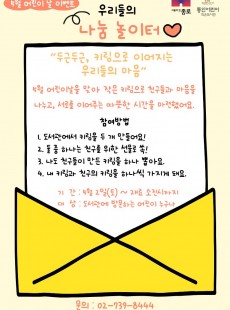 4월 어린이 날 이벤트
우리들의
나눔 놀이터
종로
통인어린이
작은도서관
"두근두근, 키링으로 이어지는
우리들의 마음"
4월 어린이날을 맞아 작은 키링으로 친구들과 마음을
나누고, 서로를 이어주는 따뜻한 시간을 마련했어요.
참여방법
1. 도서관에서 키링을 두 개 만들어요!
2. 둘 중 하나는 친구를 위한 선물로 쏙!
3. 나도 친구들이 만든 키링을 하나 뽑아요.
4. 내 키링과 친구의 키링을 하나씩 가지게 돼요.
기 간 : 4월 2일(토) ~ 재료 소진시까지
대 상 : 도서관에 방문하는 어린이 누구나
문의 : 02-739-8444